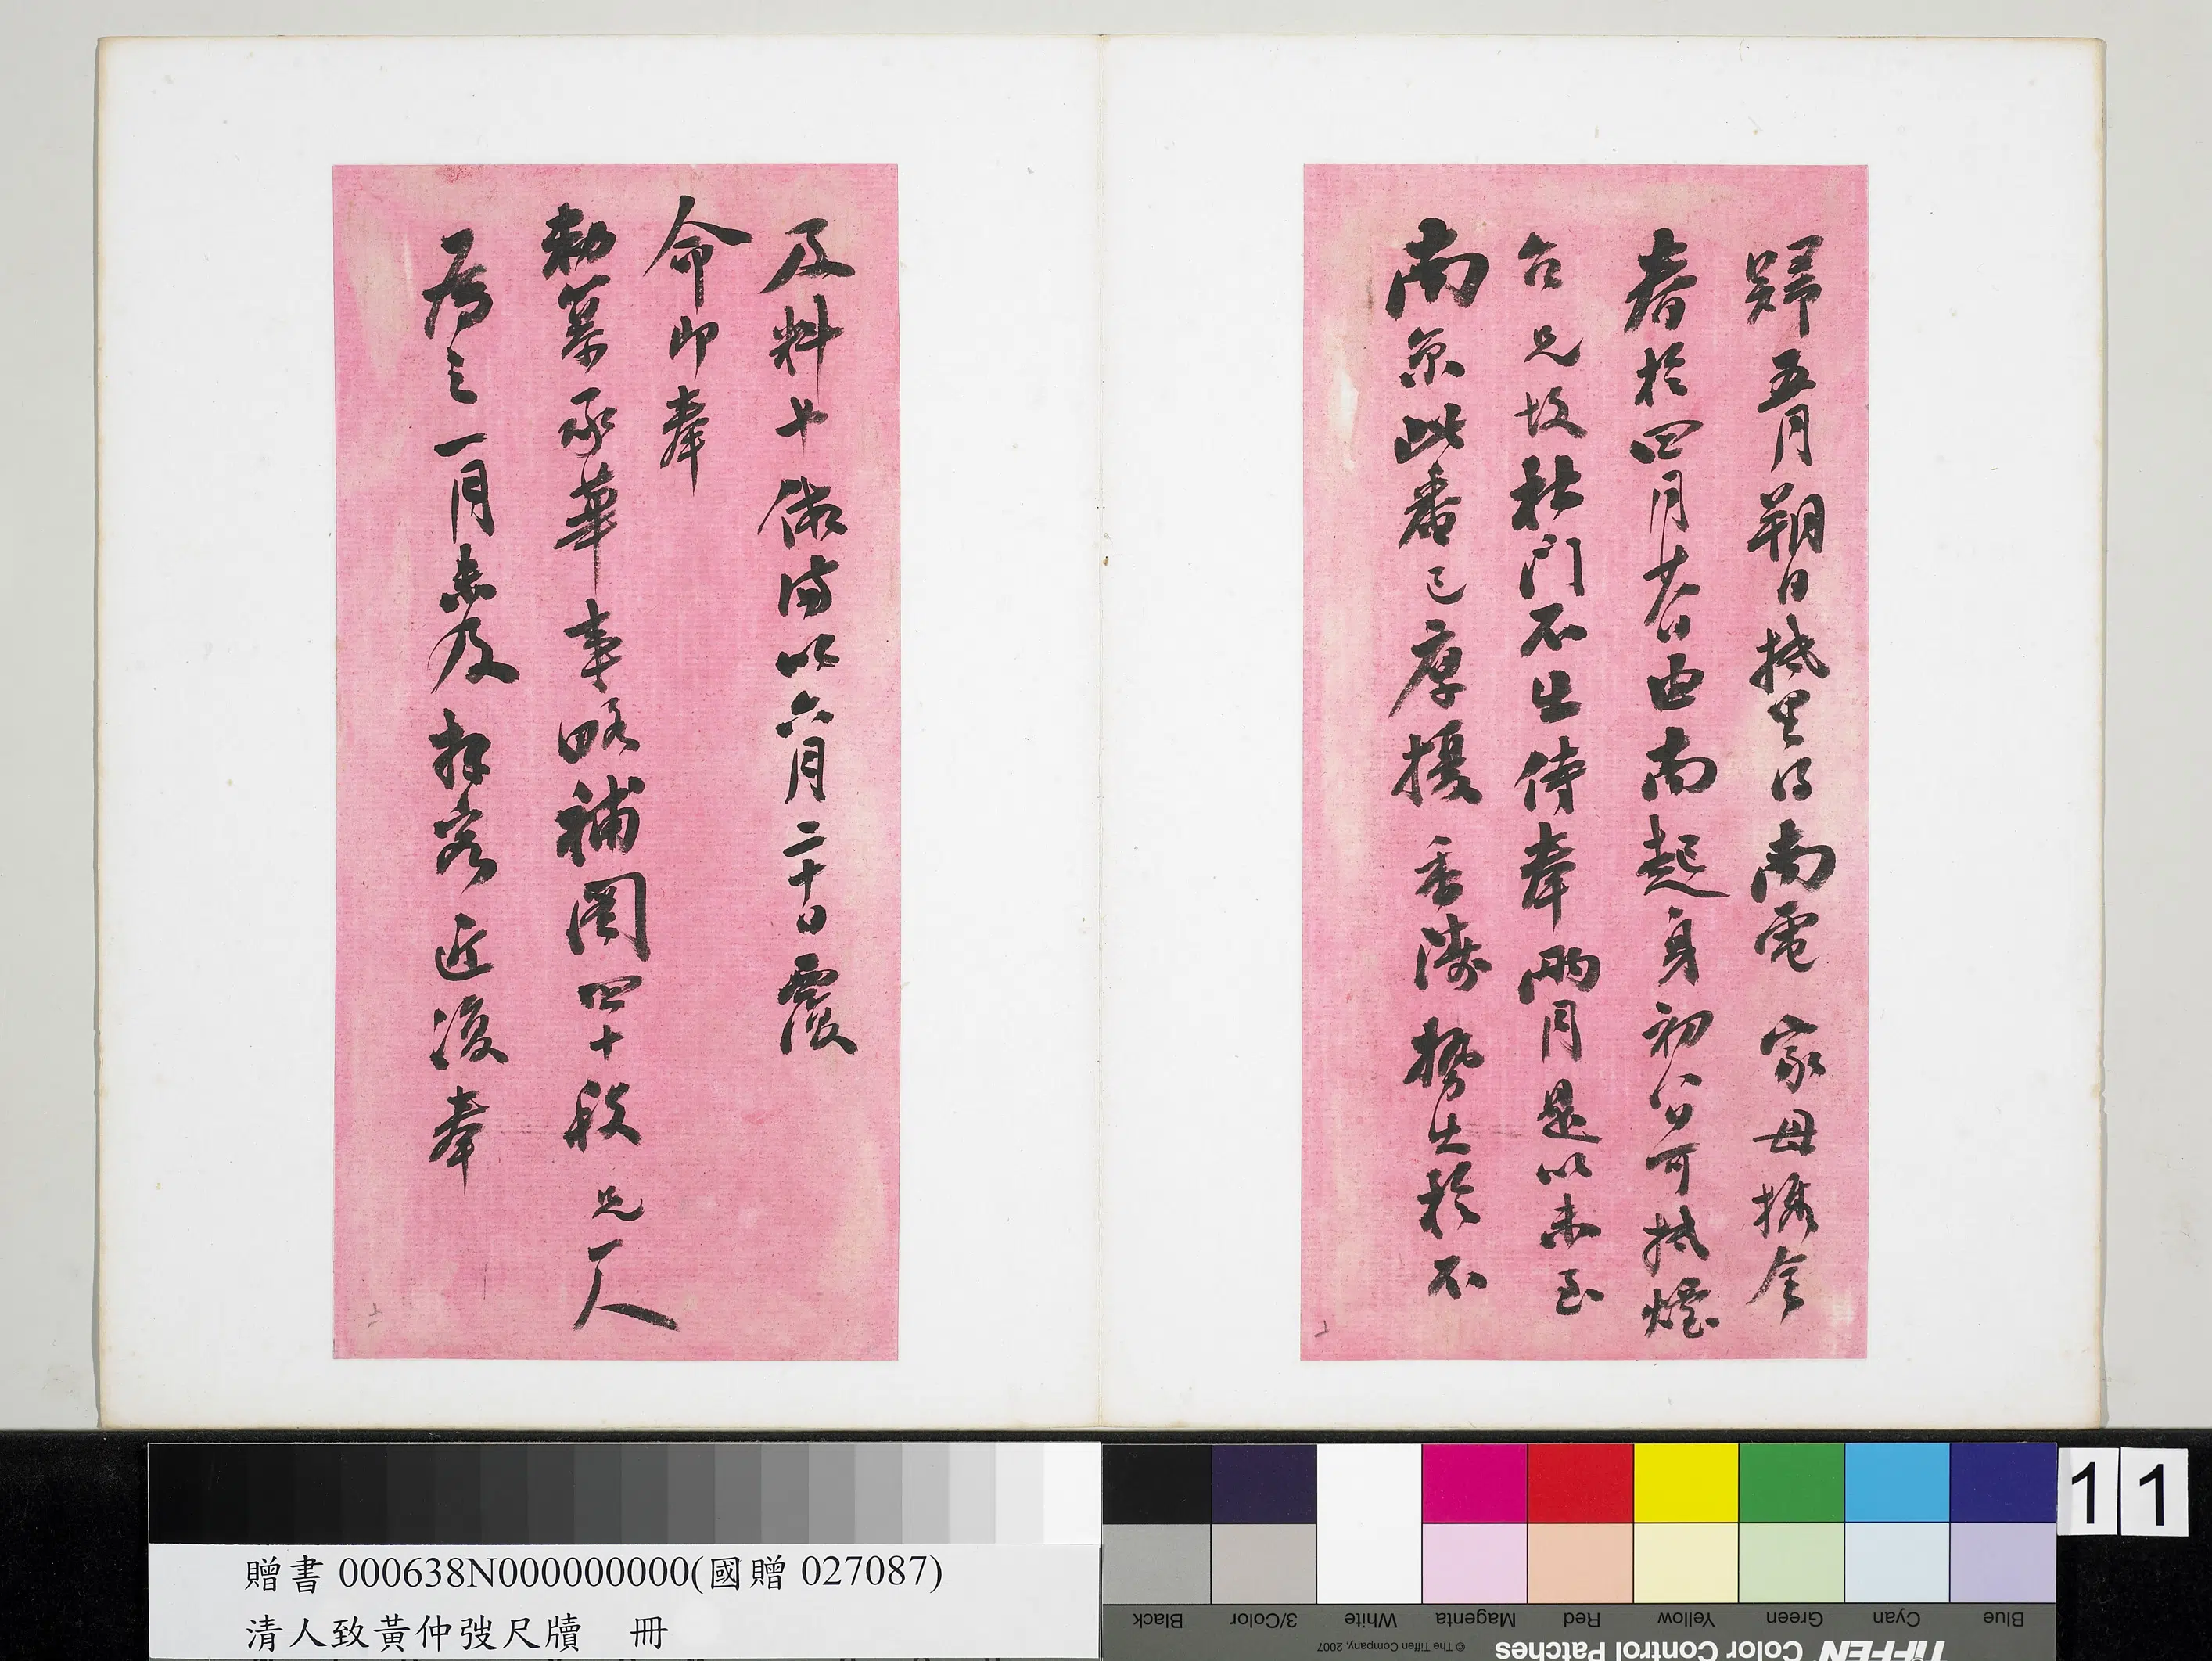 歸五月朔日抵里得南電家母攜全
眷於四月杪由南起身初八可抵煙
台兄故杜門不出侍奉兩月是以未至
南京此番已辱援手濤勢出於不
及料也俶南以六月二十日覆
命即奉
勅纂承華事略補圖四十段兄一人
為之一月未及拜客近復奉
贈書 000638N000000000(國贈 027087)
清人致黃仲弢尺牘 冊
11
Black
3/Color
White
Magenta
Red
Yellow
Green
Cyan
Blue
© The Tiffen Company, 2007
TIFFEN Color Control Patches